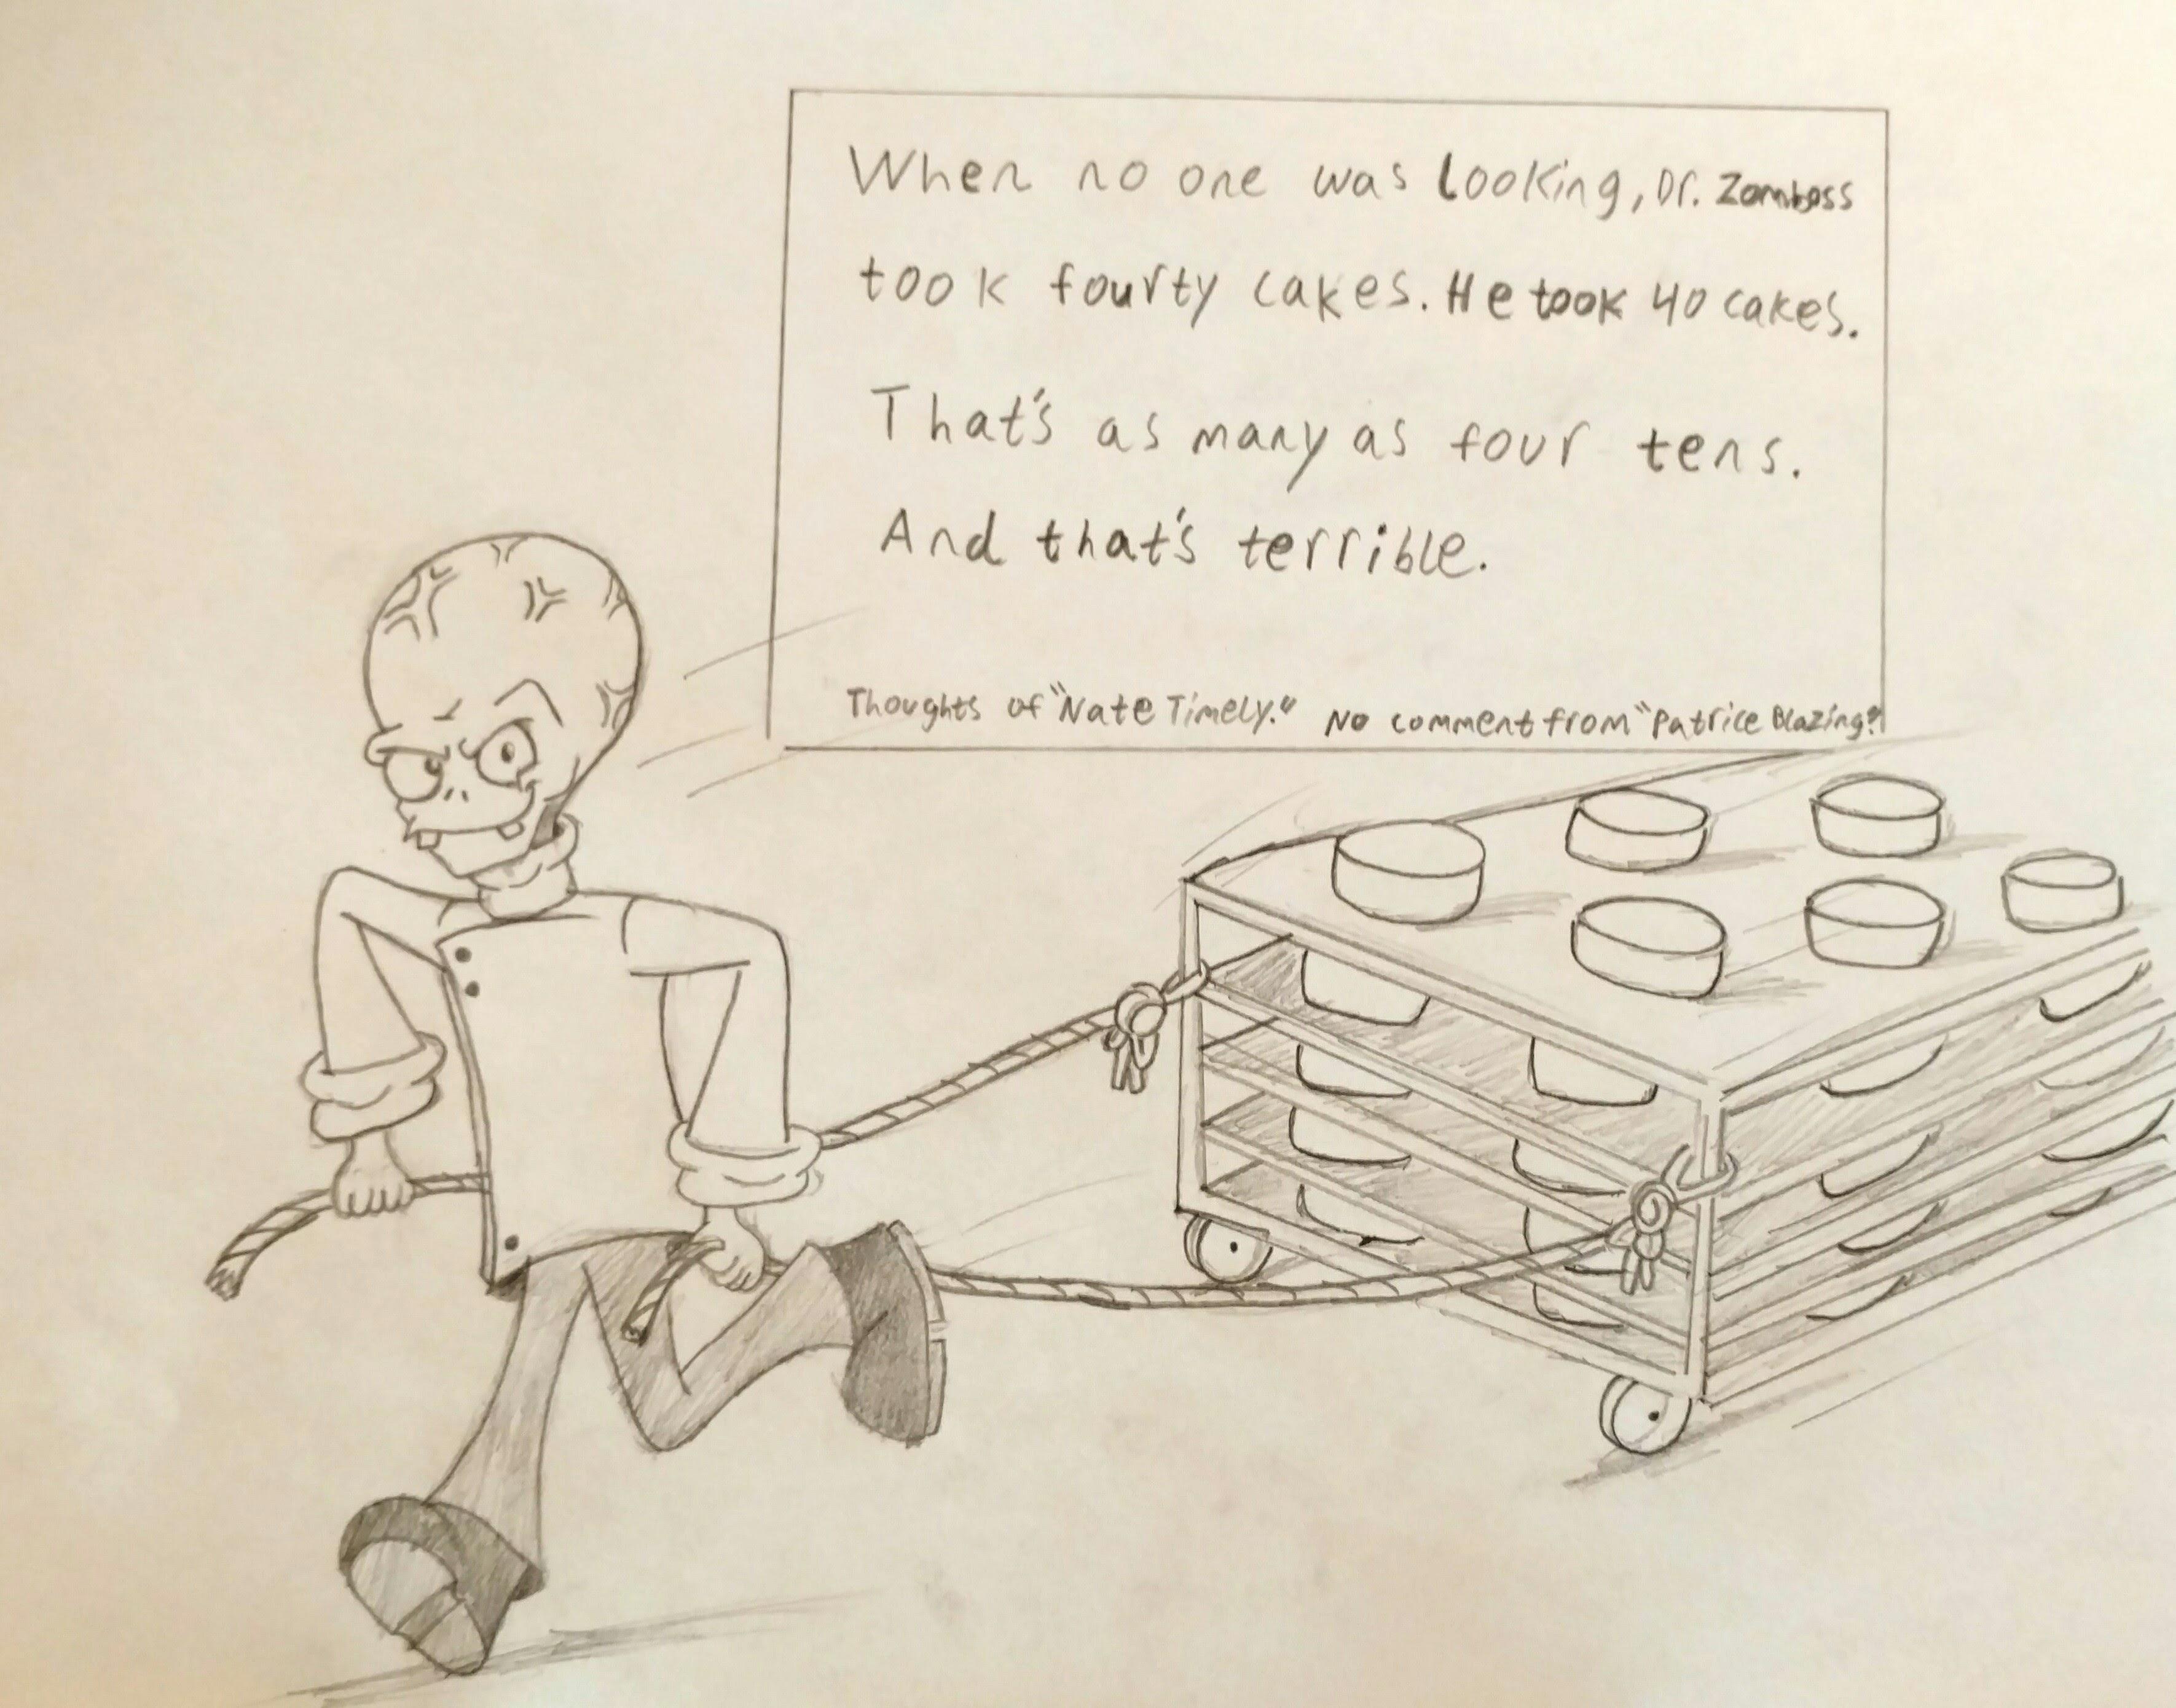 When no one was looking, Dr. Zomboss
took fourty cakes. He took 40 cakes.
That's as many as four tens.
And that's terrible.
Thoughts of "Nate Timely." No comment from "Patrice Blazing."